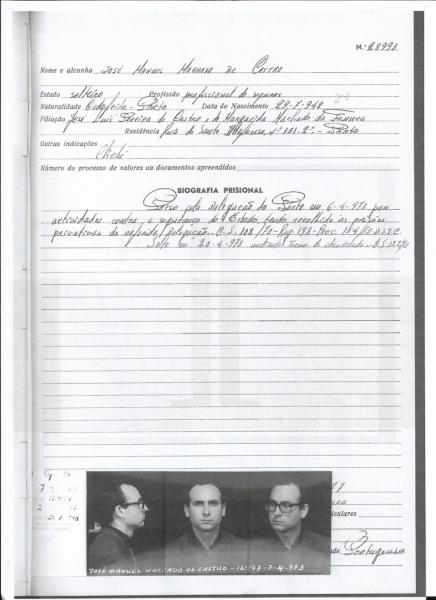 N.º 28993
Nome e alcunha José Manuel Machado de Castro
Estado solteiro Profissão profissional de seguros
Naturalidade Cedofeita - Porto Data do Nascimento 29-7-948
Filiação José Luís Pereira de Castro e de Margarida Machado da Fonseca
Residência Rua de Santo Ildefonso, nº 131-2º - Porto
Outras indicações
Cliché
Número do processo de valores ou documentos apreendidos
BIOGRAFIA PRISIONAL
Preso pela Delegação do Porto em 6-4-973 por
actividades contra a segurança do Estado, tendo recolhido às prisões
privativas da referida Delegação. O.S. 108/73-Reg. 198-Proc.
Solto em 20-4-973 mediante termo de identidade. O.S.
culares
Portuguesa
JOSÉ MANUEL MACHADO DE CASTRO - 7-4-973